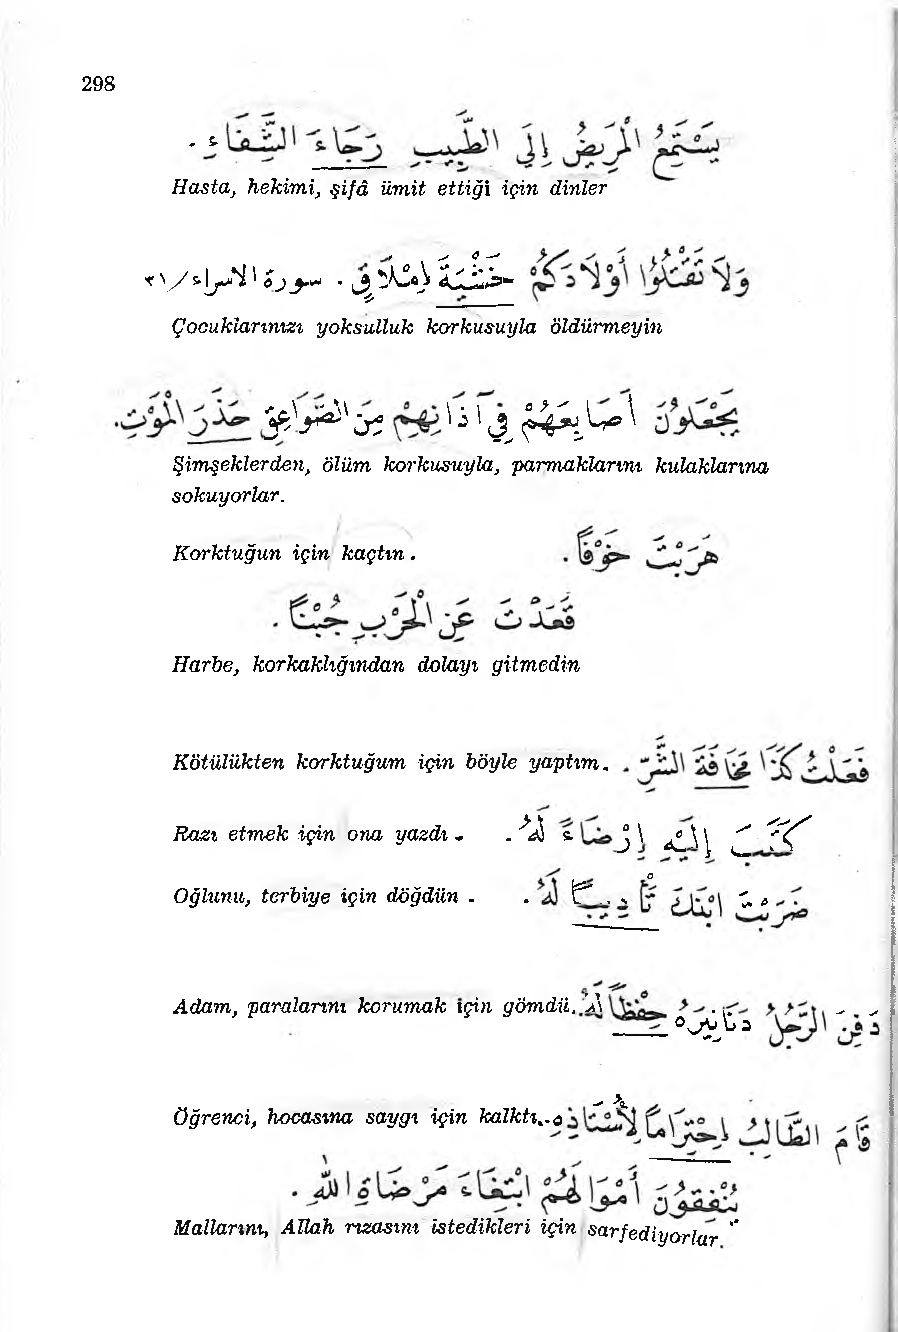 298
يَسْتَمِعُ الْمَرِيضُ إِلَى الطَّبِيبِ رَجَاءَ الشِّفَاءِ .
Hasta, hekimi, şifâ ümit ettiği için dinler
وَلَا تَقْتُلُوْا أَوْلَادَكُمْ خَشْيَةَ إِمْلَاقٍ . سورة الاسراء/٣١
Çocuklarınızı yoksulluk korkusuyla öldürmeyin
يَجْعَلُوْنَ أَصَابِعَهُمْ فِي آذَانِهِمْ مِنَ الصَّوَاعِقِ حَذَرَ الْمَوْتِ.
Şimşeklerden, ölüm korkusuyla, parmaklarını kulaklarına
sokuyorlar.
Korktuğun için kaçtın . هَرَبْتَ خَوْفًا .
قَعَدْتَ عَنِ الْحَرْبِ جُبْنًا .
Harbe, korkaklığından dolayı gitmedin
Kötülükten korktuğum için böyle yaptım. فَعَلْتُ كَذَا مَخَافَةَ الشَّرِّ .
Razı etmek için ona yazdı . كَتَبَ إِلَيْهِ إِرْضَاءً لَهُ .
Oğlunu, terbiye için döğdün . ضَرَبْتَ ابْنَكَ تَأْدِيبًا لَهُ .
Adam, paralarını korumak için gömdü. دَفَنَ الرَّجُلُ دَنَانِيْرَهُ حِفْظًا لَهُ.
Öğrenci, hocasına saygı için kalktı. قَامَ الطَّالِبُ إِحْتِرَامًا لِأُسْتَاذِهِ.
يُنْفِقُوْنَ أَمْوَالَهُمُ ابْتِغَاءَ مَرْضَاةِ اللهِ .
Mallarını, Allah rızasını istedikleri için sarfediyorlar.